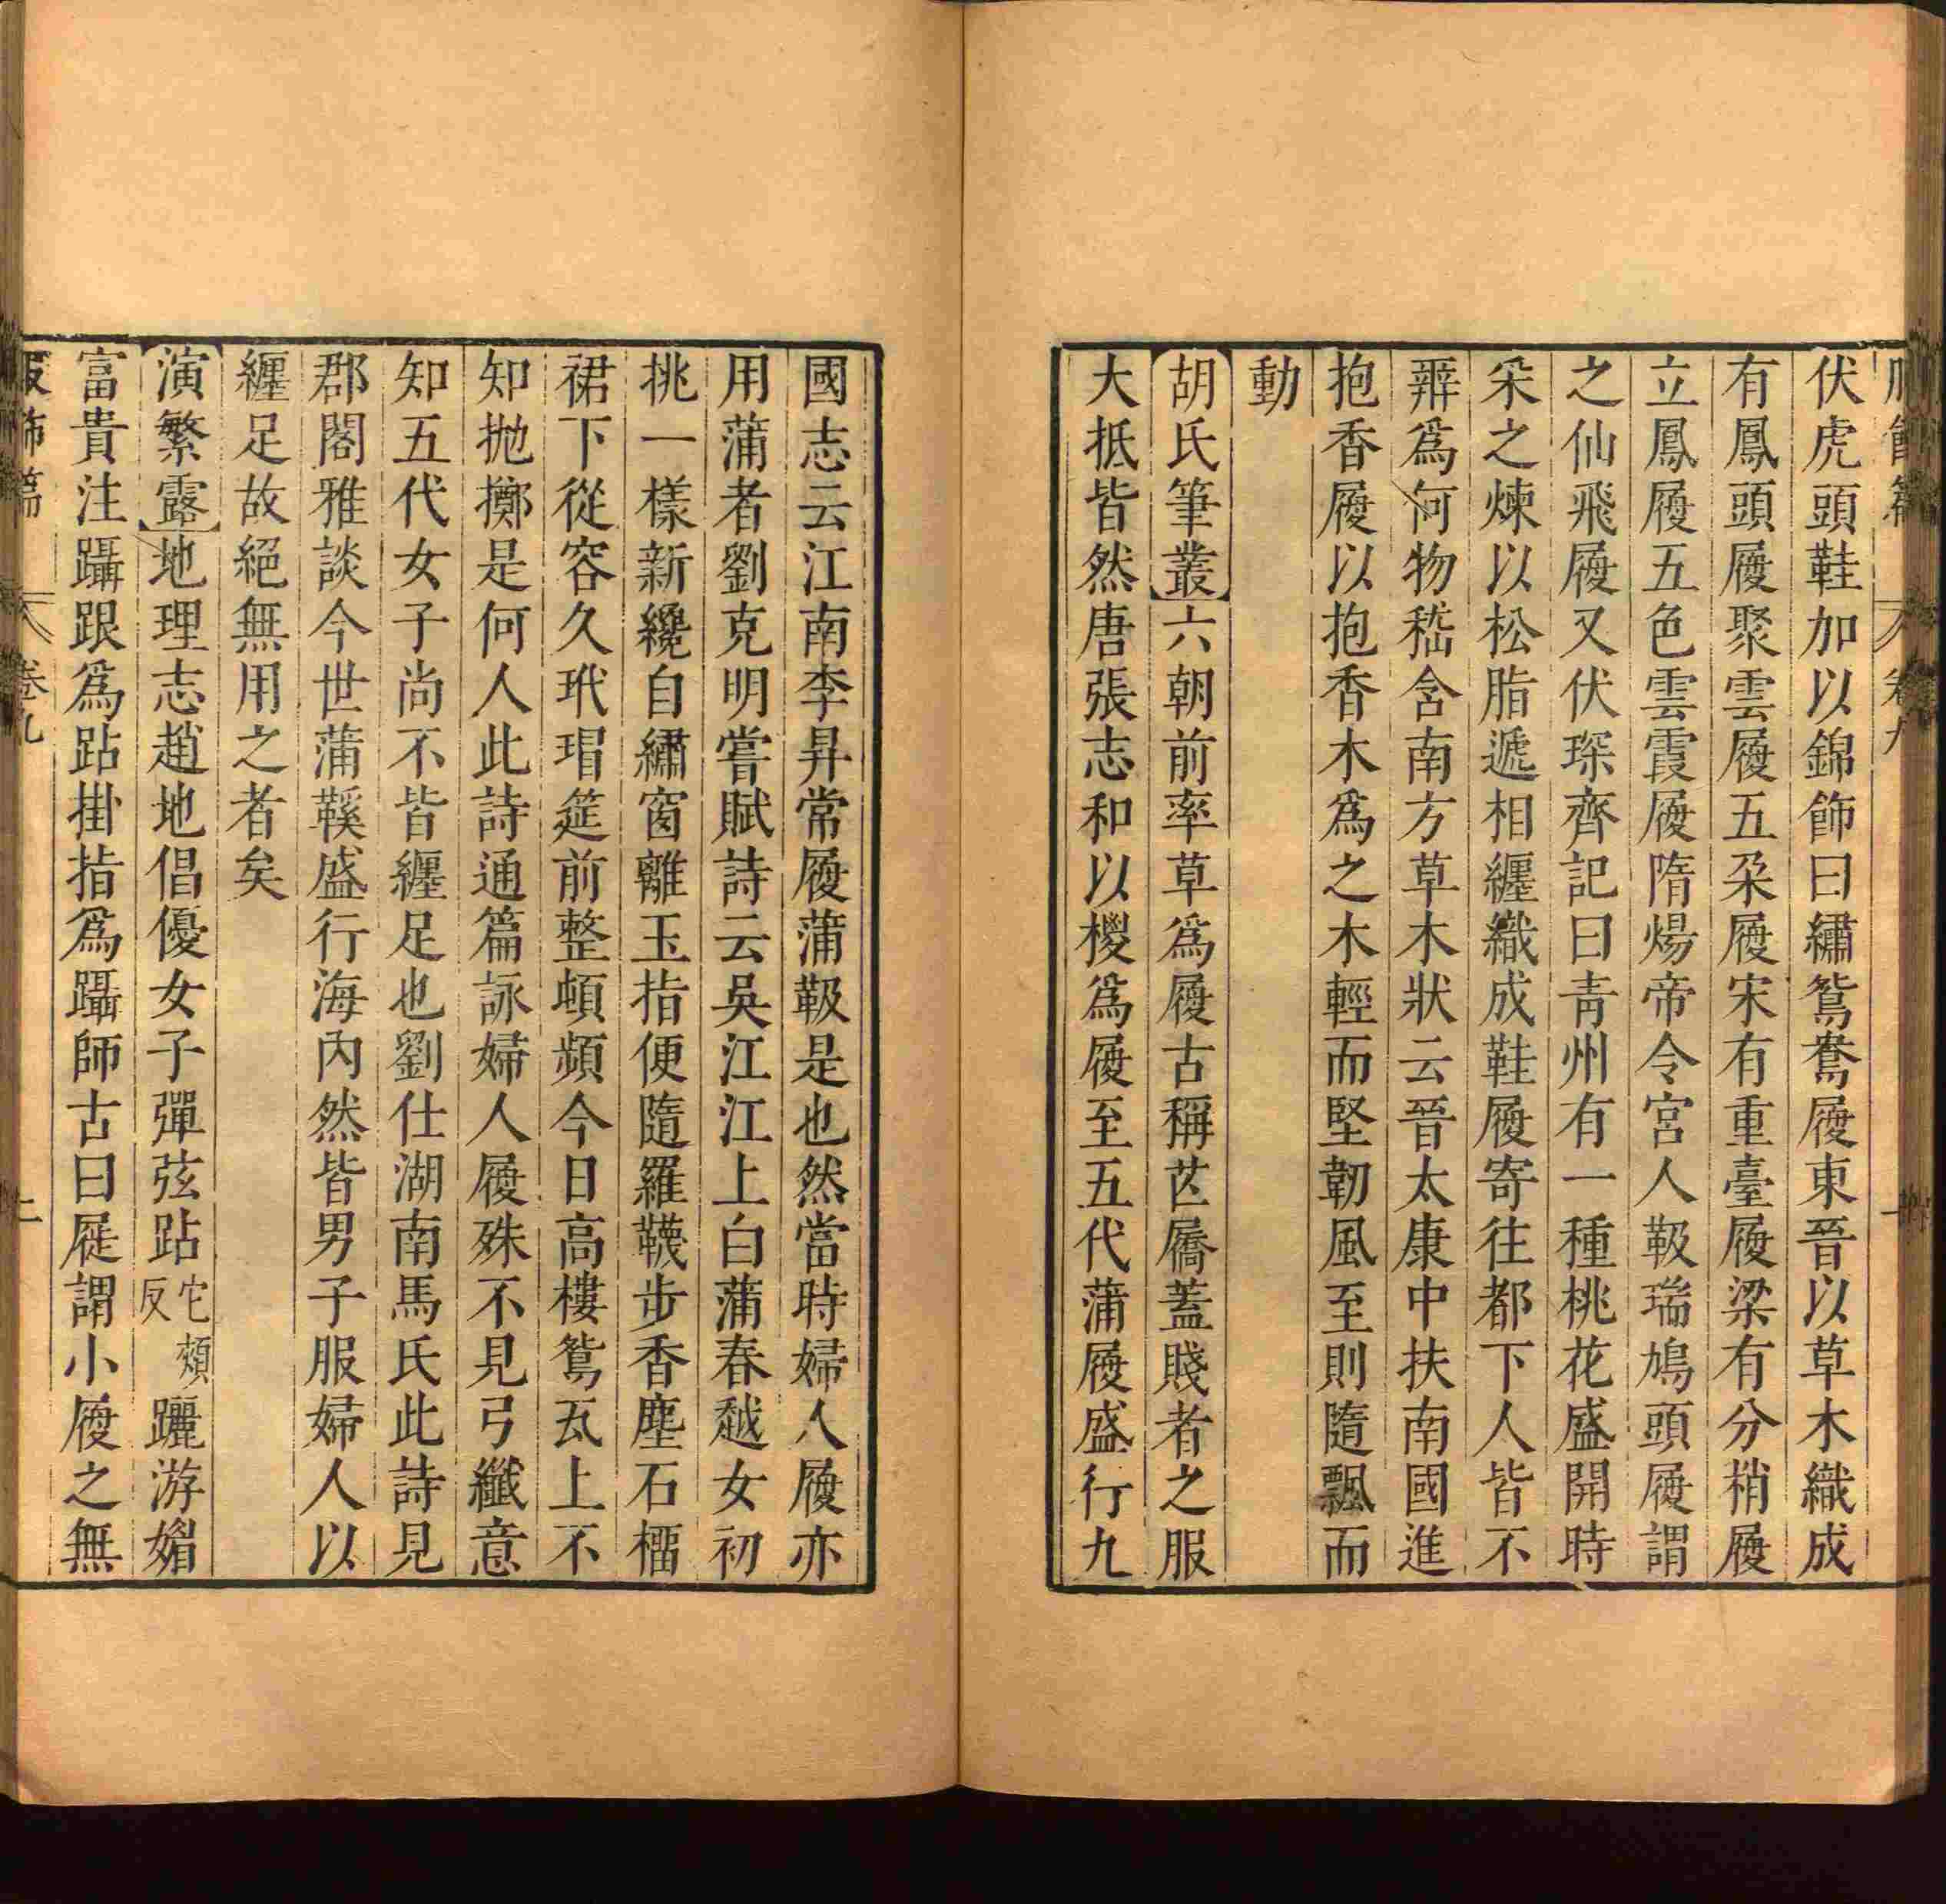 伏虎頭鞋加以錦飾曰繡鴛鴦履東晉以草木織成
有鳳頭履聚雲履五朵履宋有重臺履梁有分梢履
立鳳履五色雲霞履隋煬帝令宮人靸瑞鳩頭履謂
之仙飛履又伏琛齊記曰青州有一種桃花盛開時
采之煉以松脂遞相纏織成鞋履寄往都下人皆不
辨爲何物嵇含南方草木狀云晉太康中扶南國進
抱香履以抱香木爲之木輕而堅韌風至則隨飄而
動
胡氏筆叢六朝前率草爲履古稱芒屩蓋賤者之服
大抵皆然唐張志和以椶爲履至五代蒲履盛行九
國志云江南李昪常履蒲靸是也然當時婦人履亦
用蒲者劉克明嘗賦詩云吳江江上白蒲春越女初
挑一樣新纔自繡窗離玉指便隨羅韈步香塵石榴
裙下從容久玳瑁筵前整頓頻今日高樓鴛瓦上不
知拋擲是何人此詩通篇詠婦人履殊不見弓纖意
知五代女子尚不皆纏足也劉仕湖南馬氏此詩見
郡閣雅談今世蒲鞵盛行海內然皆男子服婦人以
纏足故絕無用之者矣
演繁露地理志趙地倡優女子彈弦跕它頰反躧游媚
富貴注躡跟爲跕掛指爲躡師古曰屣謂小履之無
服飾篇 卷九